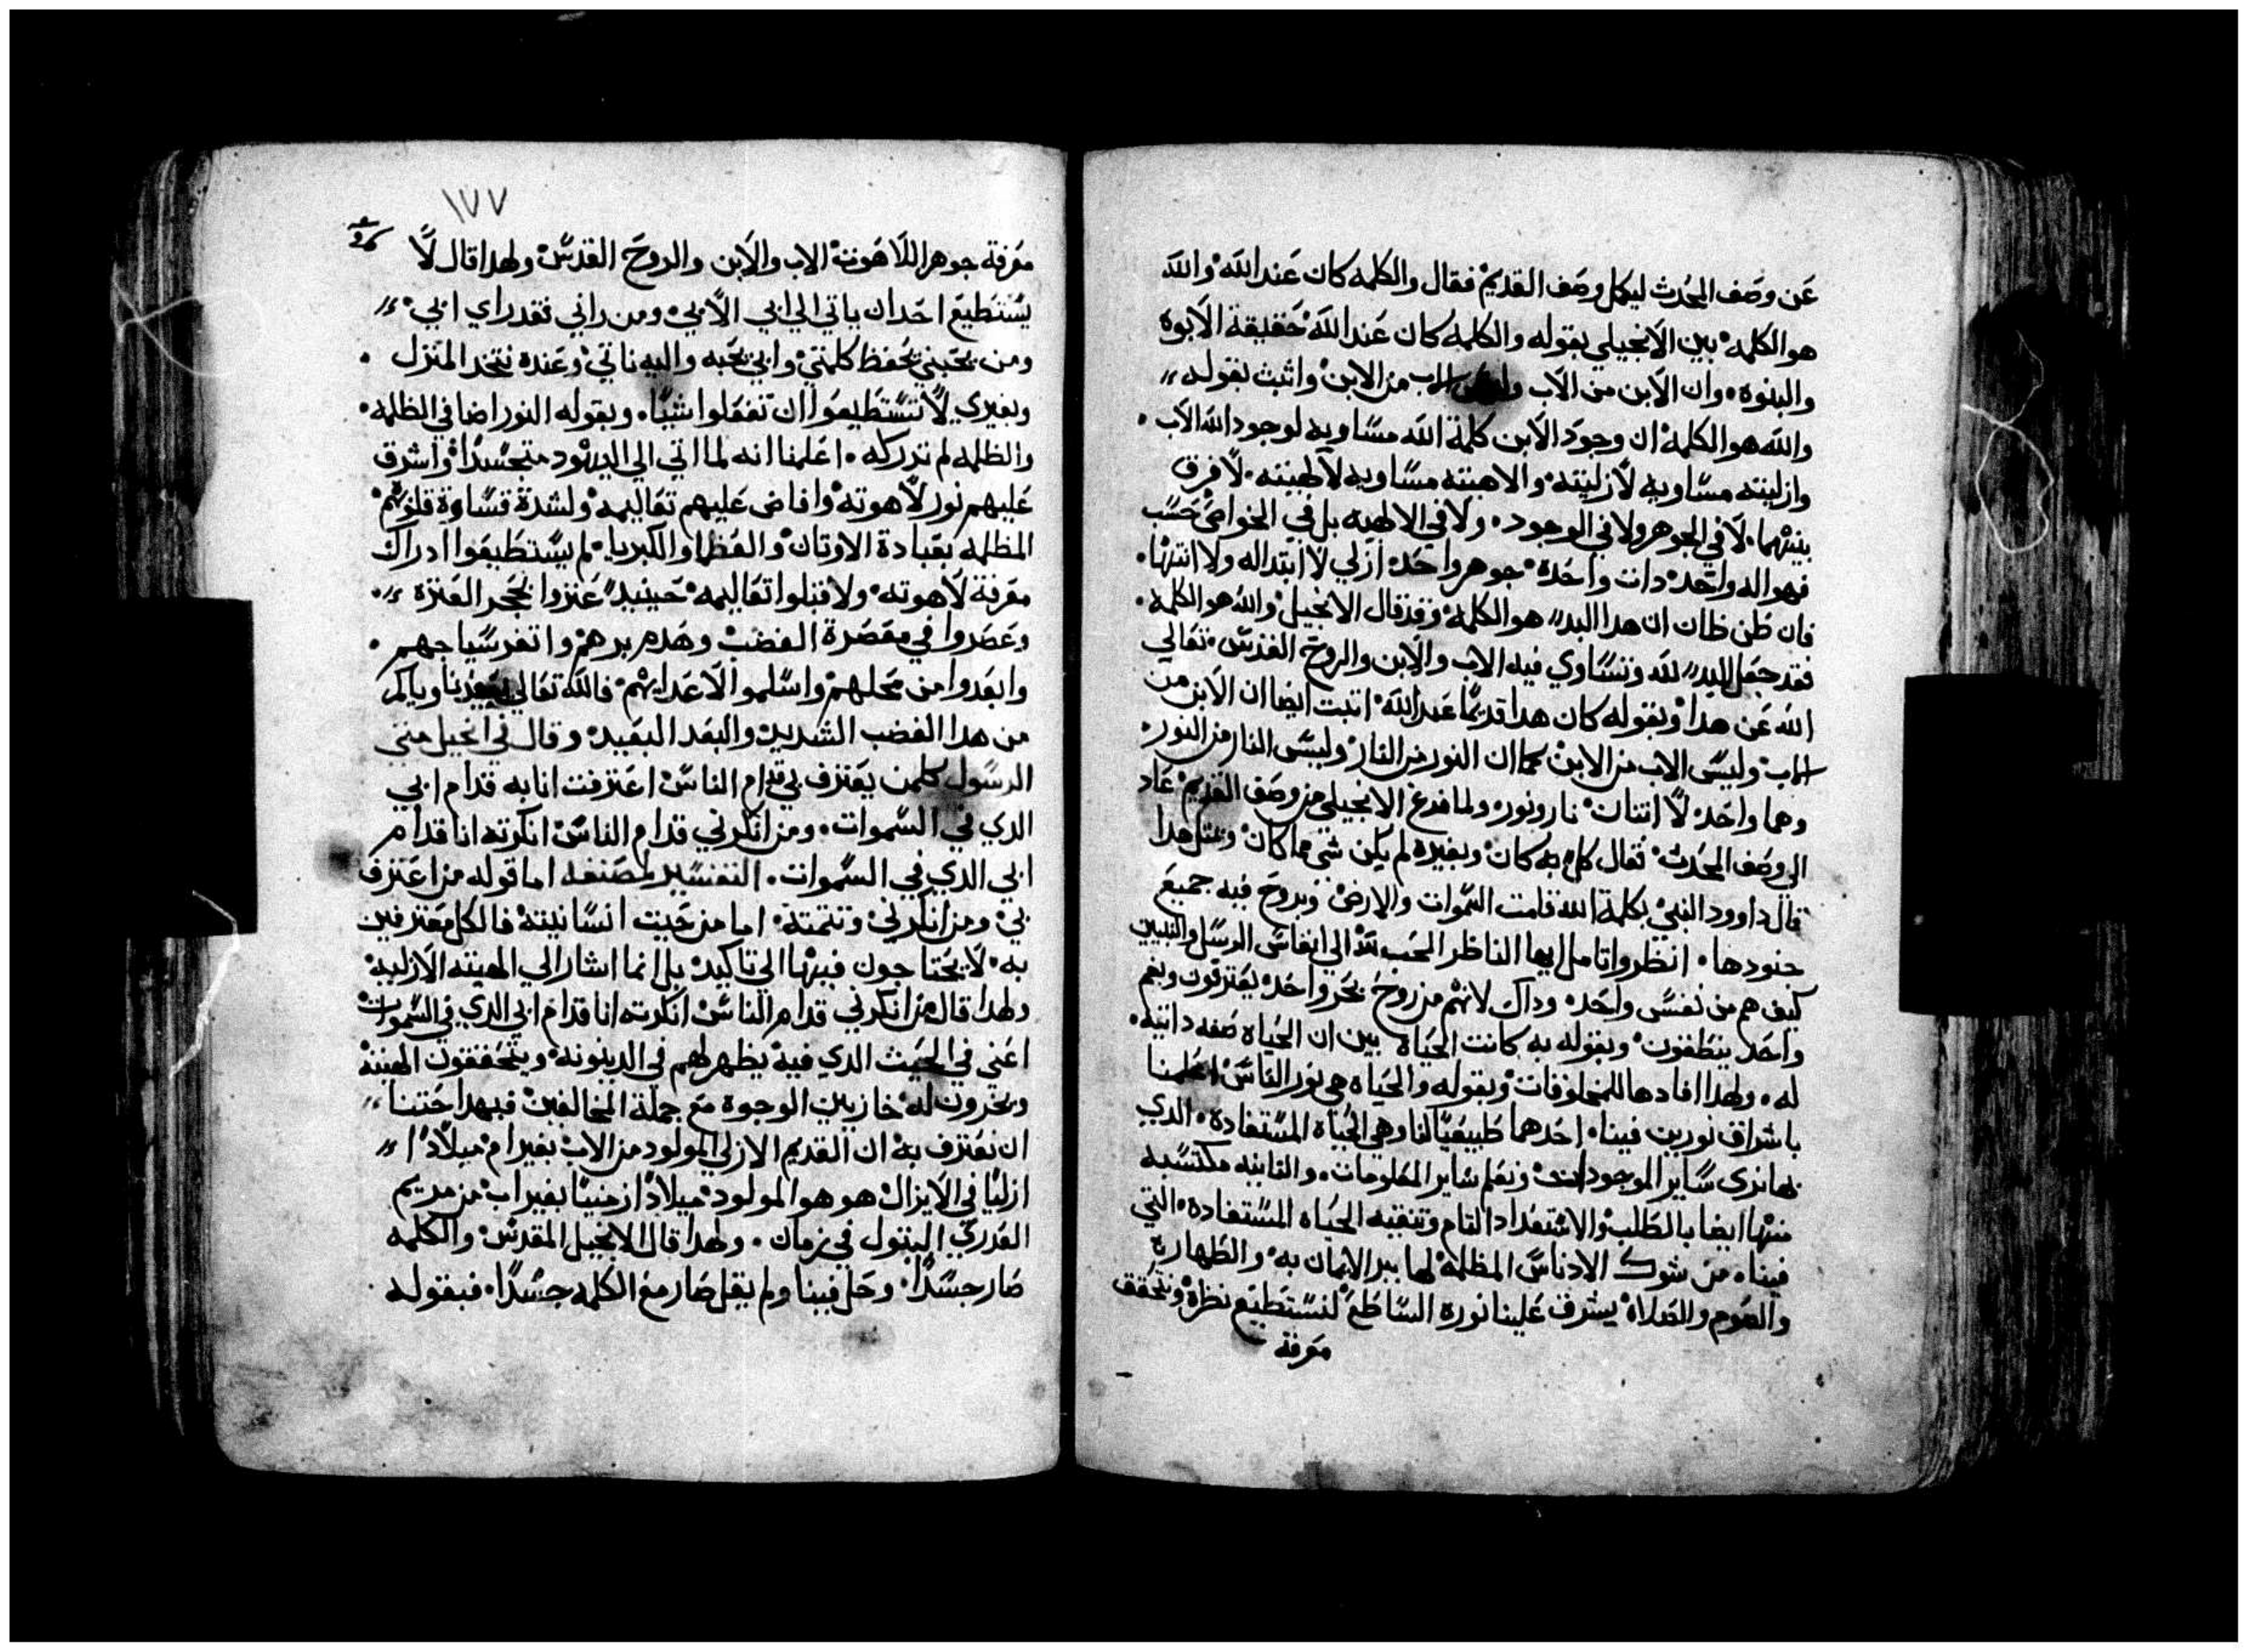 عن وصف المحدث ليكمل وصف القديم فقال والكلمه كان عند الله والله
هو الكلمه بين الانجيلي بقوله والكلمه كان عند الله حقيقة الابوه
والبنوه وان الابن من الاب وليس الاب من الابن واثبت بقوله
والله هو الكلمه ان وجود الابن كلمة الله مساويه لوجود الله الاب
وازليته مساويه لازليته والاهيته مساويه لالهيته لا فرق
بينهما لا في الجوهر ولا في الوجود ولا في الالهيه بل في الخواص حسب
فهو اله واحد دات واحده جوهر واحد ازلي لا ابتدا له ولا انتها
فان ظن ظان ان هدا البدء هو الكلمه وقد قال الانجيل والله هو الكلمه
فقد جعل البدء لله وتساوي فيه الاب والابن والروح القدس تعالي
الله عن هدا وبقوله كان هدا قديما عند الله اتبت ايضا ان الابن من
الاب وليس الاب من الابن كما ان النور من النار وليس النار من النور
وهما واحد لا اتنان نار ونور ولما فرغ الانجيلي من وصف القديم عاد
الي وصف المحدث فقال كل به كان وبغيره لم يكن شي مما كان ومتل هدا
قال داوود النبي بكلمة الله قامت السموات والارض وبروح فيه جميع
جنودها انظر وتامل ايها الناظر المحب لله الي انفاس الرسل والنبيين
كيف هم من نفس واحده وداك لانهم من روح بحر واحد يغترفون وبفم
واحد ينطقون وبقوله به كانت الحياه بين ان الحياه صفه داتيه
له ولهدا افادها للمخلوقات وبقوله والحياه هي نور الناس اعلمنا
باشراق نورين فينا احدهما طبيعيا لنا وهي الحياه المستفاده الدي
بها نري ساير الموجودات ونعلم ساير المعلومات والتانيه مكتسبه
منها ايضا بالطلب والاستعداد التام وتنقيه الحياه المستفاده التي
فينا من شوك الادناس المظلمه لها ببر الايمان به والطهاره
والصوم والصلاه يشرق علينا نوره الساطع لنستطيع نظره ونحقق
معرفة
١٧٧
معرفة جوهر اللاهوت الاب والابن والروح القدس ولهدا قال لا
يستطيع احد ان ياتي الي ابي الا بي ومن راني فقد راي ابي
ومن يحبني يحفظ كلمتي وابي يحبه واليه ناتي وعنده نتخد المنزل
وبغيري لا تستطيعوا ان تفعلوا شيا وبقوله النور اضا في الظلمه
والظلمه لم تدركه اعلمنا انه لما اتي الي اليهود متجسدا واشرق
عليهم نور لاهوته وافاض عليهم تعاليمه ولشدة قساوة قلوبهم
المظلمه بعبادة الاوتان والعظما والكبريا لم يستطيعوا ادراك
معرفة لاهوته ولا قبلوا تعاليمه حينيد عتروا بحجر العتره
وعصروا في معصرة الغضب وهدم برجهم وانقض سياجهم
وابعدوا من محلهم واسلموا لاعدايهم فالله تعالي يعيدنا وياكم
من هدا الغضب الشديد والبعد البعيد وقال في انجيل متي
الرسول كلمن يعترف بي قدام الناس اعترفت انا به قدام ابي
الدي في السموات ومن انكرني قدام الناس انكرته انا قدام
ابي الدي في السموات التفسير لمصنفه اما قوله من اعترف
بي ومن انكرني وتتمته اما من حيت انسانيته فالكل معترفين
به لا يحتاجون فيها الي تاكيد بل انما اشار الي الهيته الازليه
ولهدا قال من انكرني قدام الناس انكرته انا قدام ابي الدي في السموات
اعني في الحيث الدي فيه يظهر لهم في الدينونه ويتحققون الهيته
ويخرون له خازيين الوجوه مع جملة المخالفين فبهدا حتنا
ان نعترف به ان القديم الازلي المولود من الاب بغير ام ميلادا
ازليا في الايزال هو هو المولود ميلادا زمنيا بغير اب من مريم
العدري البتول في زمان ولهدا قال الانجيل المقدس والكلمه
صار جسدا وحل فينا ولم يقل صار مع الكلمه جسدا فبقوله